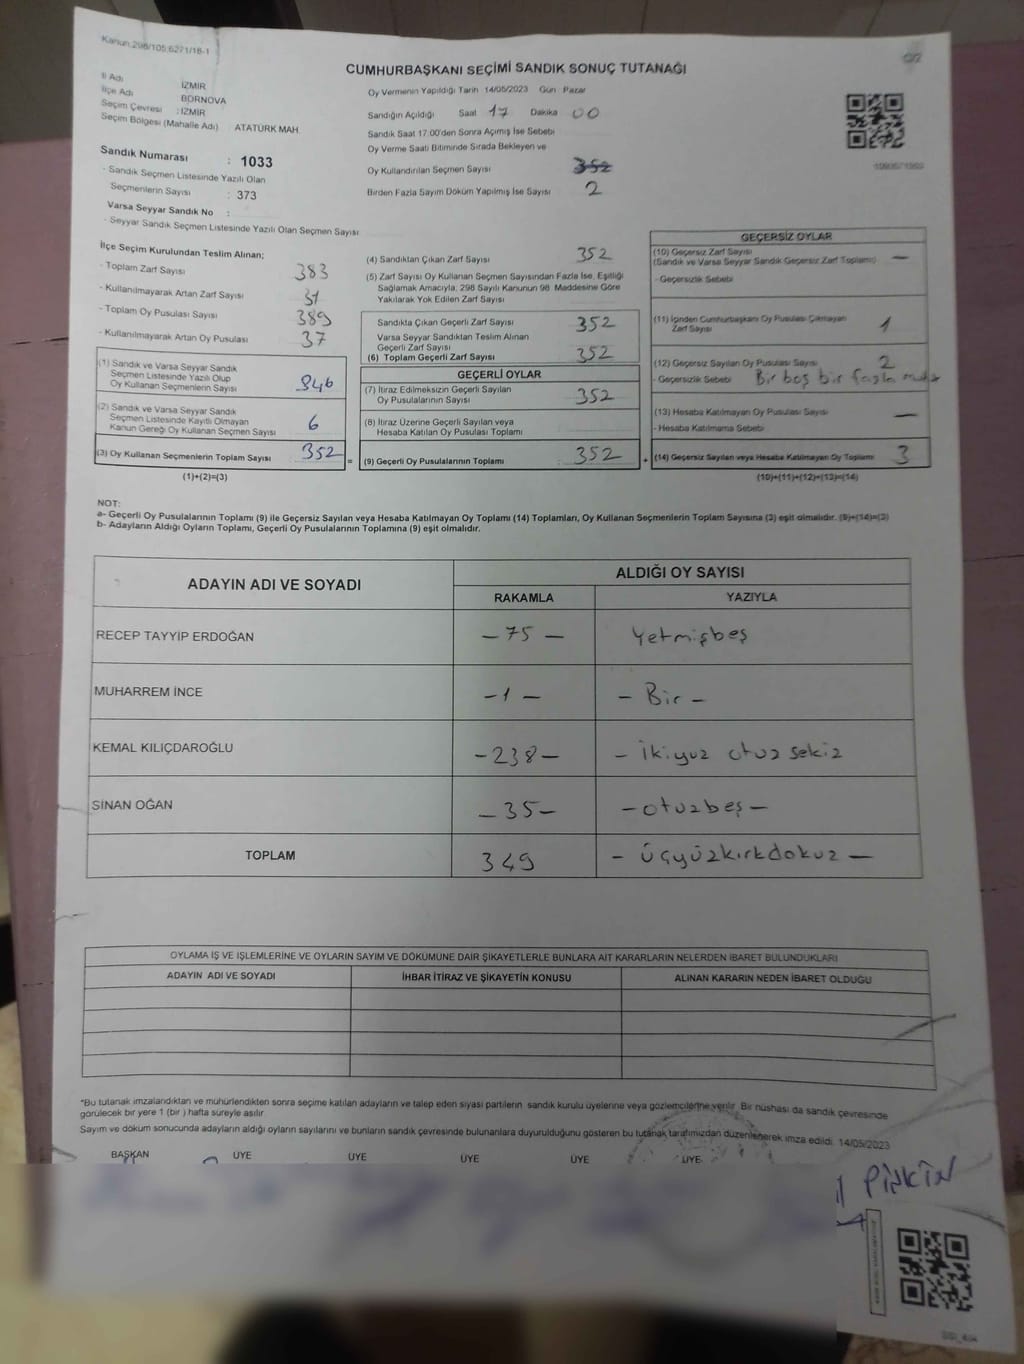 Kanun:298/105,6271/18-1
CUMHURBAŞKANI SEÇİMİ SANDIK SONUÇ TUTANAĞI
İl Adı : İZMİR
İlçe Adı BORNOVA
Seçim Çevresi : İZMİR
Seçim Bölgesi (Mahalle Adı) : ATATÜRK MAH.
Sandık Numarası : 1033
- Sandık Seçmen Listesinde Yazılı Olan
Seçmenlerin Sayısı : 373
Varsa Seyyar Sandık No :
- Seyyar Sandık Seçmen Listesinde Yazılı Olan Seçmen Sayısı
Oy Vermenin Yapıldığı Tarih 14/05/2023 Gün Pazar
Sandığın Açıldığı Saat 17 Dakika 00
Sandık Saat 17:00'den Sonra Açılmış İse Sebebi
Oy Verme Saati Bitiminde Sırada Bekleyen ve
Oy Kullandırılan Seçmen Sayısı 352
Birden Fazla Sayım Döküm Yapılmış İse Sayısı 2
İlçe Seçim Kurulundan Teslim Alınan;
- Toplam Zarf Sayısı 383
- Kullanılmayarak Artan Zarf Sayısı 31
- Toplam Oy Pusulası Sayısı 389
- Kullanılmayarak Artan Oy Pusulası 37
(1) Sandık ve Varsa Seyyar Sandık
Seçmen Listesinde Yazılı Olup
Oy Kullanan Seçmenlerin Sayısı 346
(2) Sandık ve Varsa Seyyar Sandık
Seçmen Listesinde Kayıtlı Olmayan
Kanun Gereği Oy Kullanan Seçmen Sayısı 6
(3) Oy Kullanan Seçmenlerin Toplam Sayısı 352
(1)+(2)=(3)
(4) Sandıktan Çıkan Zarf Sayısı 352
(5) Zarf Sayısı Oy Kullanan Seçmen Sayısından Fazla İse, Eşitliği
Sağlamak Amacıyla, 298 Sayılı Kanunun 98. Maddesine Göre
Yakılarak Yok Edilen Zarf Sayısı
Sandıkta Çıkan Geçerli Zarf Sayısı 352
Varsa Seyyar Sandıktan Teslim Alınan
Geçerli Zarf Sayısı
(6) Toplam Geçerli Zarf Sayısı 352
GEÇERLİ OYLAR
(7) İtiraz Edilmeksizin Geçerli Sayılan
Oy Pusulalarının Sayısı 352
(8) İtiraz Üzerine Geçerli Sayılan veya
Hesaba Katılan Oy Pusulası Toplamı
= (9) Geçerli Oy Pusulalarının Toplamı : 352
GEÇERSİZ OYLAR
(10) Geçersiz Zarf Sayısı
(Sandık ve Varsa Seyyar Sandık Geçersiz Zarf Toplamı) —
- Geçersizlik Sebebi
(11) İçinden Cumhurbaşkanı Oy Pusulası Çıkmayan
Zarf Sayısı 1
(12) Geçersiz Sayılan Oy Pusulası Sayısı 2
- Geçersizlik Sebebi Bir boş bir fazla
(13) Hesaba Katılmayan Oy Pusulası Sayısı —
- Hesaba Katılmama Sebebi
+ (14) Geçersiz Sayılan veya Hesaba Katılmayan Oy Toplamı 3
(10)+(11)+(12)+(13)=(14)
NOT:
a- Geçerli Oy Pusulalarının Toplamı (9) ile Geçersiz Sayılan veya Hesaba Katılmayan Oy Toplamı (14) Toplamları, Oy Kullanan Seçmenlerin Toplam Sayısına (3) eşit olmalıdır. (9)+(14)=(3)
b- Adayların Aldığı Oyların Toplamı, Geçerli Oy Pusulalarının Toplamına (9) eşit olmalıdır.
ADAYIN ADI VE SOYADI ALDIĞI OY SAYISI
RAKAMLA YAZIYLA
RECEP TAYYİP ERDOĞAN – 75 – Yetmişbeş
MUHARREM İNCE –1 – – Bir –
KEMAL KILIÇDAROĞLU –238– – İkiyuz otuz sekiz
SİNAN OĞAN –35– –otuzbeş–
TOPLAM 349 – Üçyüzkırkdokuz –
OYLAMA İŞ VE İŞLEMLERİNE VE OYLARIN SAYIM VE DÖKÜMÜNE DAİR ŞİKAYETLERLE BUNLARA AİT KARARLARIN NELERDEN İBARET BULUNDUKLARI
ADAYIN ADI VE SOYADI İHBAR İTİRAZ VE ŞİKAYETİN KONUSU ALINAN KARARIN NEDEN İBARET OLDUĞU
*Bu tutanak imzalandıktan ve mühürlendikten sonra seçime katılan adayların ve talep eden siyasi partilerin sandık kurulu üyelerine veya gözlemcilerine verilir. Bir nüshası da sandık çevresinde
görülecek bir yere 1 (bir) hafta süreyle asılır.
Sayım ve döküm sonucunda adayların aldığı oyların sayılarını ve bunların sandık çevresinde bulunanlara duyurulduğunu gösteren bu tutanak tarafımızdan düzenlenerek imza edildi. 14/05/2023
BAŞKAN ÜYE ÜYE ÜYE ÜYE ÜYE
PİŞKİN